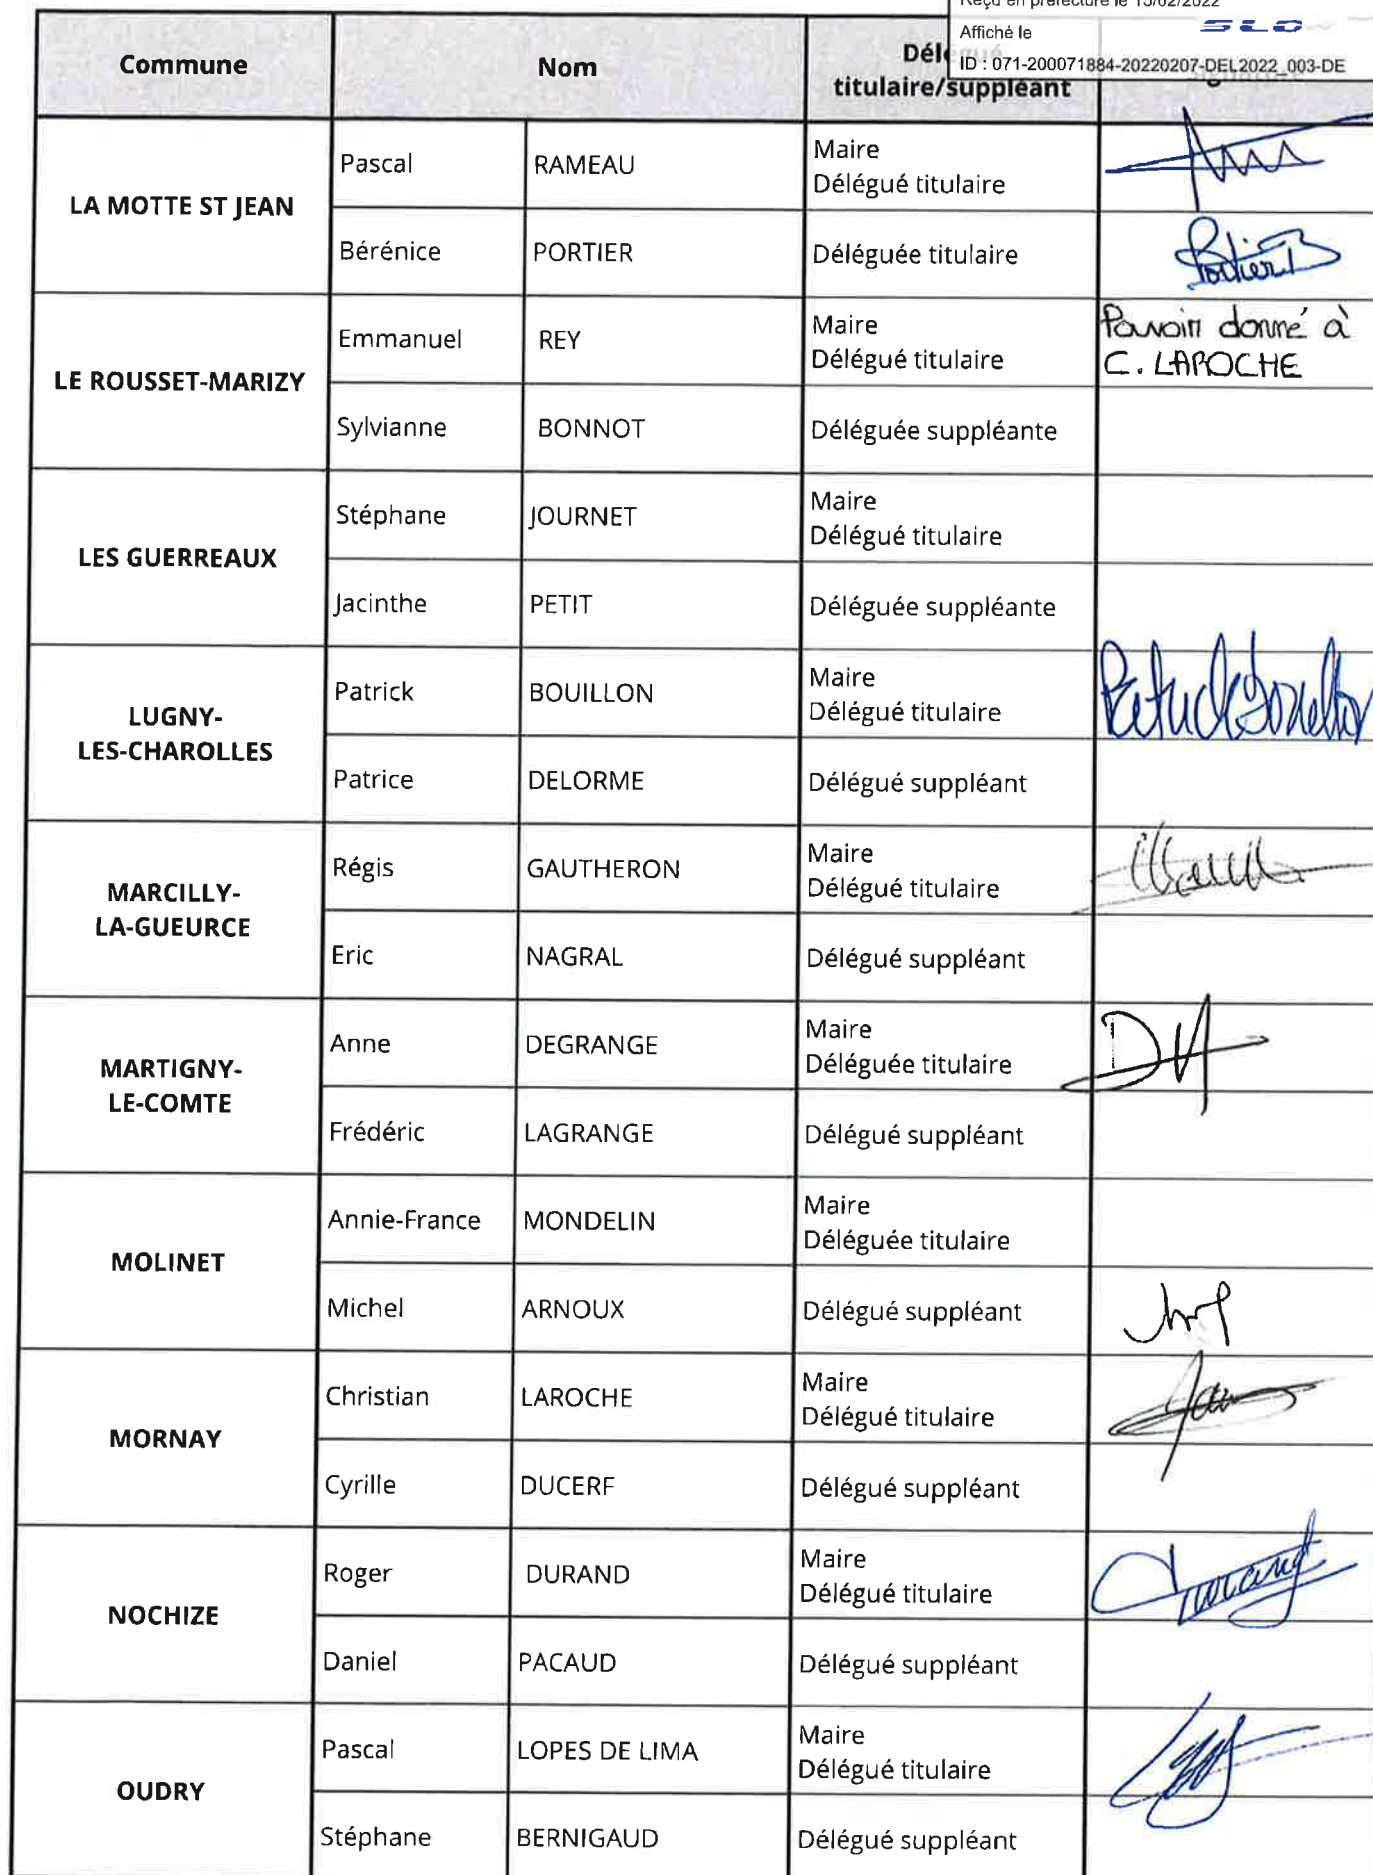 Reçu en préfecture le 15/02/2022
Affiché le
SLO
ID : 071-200071884-20220207-DEL2022_003-DE
Commune Nom
titulaire/suppléant
LA MOTTE ST JEAN
Pascal RAMEAU Maire
Délégué titulaire
Bérénice PORTIER Déléguée titulaire
Portier B
LE ROUSSET-MARIZY
Emmanuel REY Maire
Délégué titulaire
Pouvoir donné à
C. LAROCHE
Sylvianne BONNOT Déléguée suppléante
LES GUERREAUX
Stéphane JOURNET Maire
Délégué titulaire
Jacinthe PETIT Déléguée suppléante
LUGNY-
LES-CHAROLLES
Patrick BOUILLON Maire
Délégué titulaire
Patrice DELORME Délégué suppléant
MARCILLY-
LA-GUEURCE
Régis GAUTHERON Maire
Délégué titulaire
Eric NAGRAL Délégué suppléant
MARTIGNY-
LE-COMTE
Anne DEGRANGE Maire
Déléguée titulaire
Frédéric LAGRANGE Délégué suppléant
MOLINET
Annie-France MONDELIN Maire
Déléguée titulaire
Michel ARNOUX Délégué suppléant
MORNAY
Christian LAROCHE Maire
Délégué titulaire
Cyrille DUCERF Délégué suppléant
NOCHIZE
Roger DURAND Maire
Délégué titulaire
Daniel PACAUD Délégué suppléant
OUDRY
Pascal LOPES DE LIMA Maire
Délégué titulaire
Stéphane BERNIGAUD Délégué suppléant